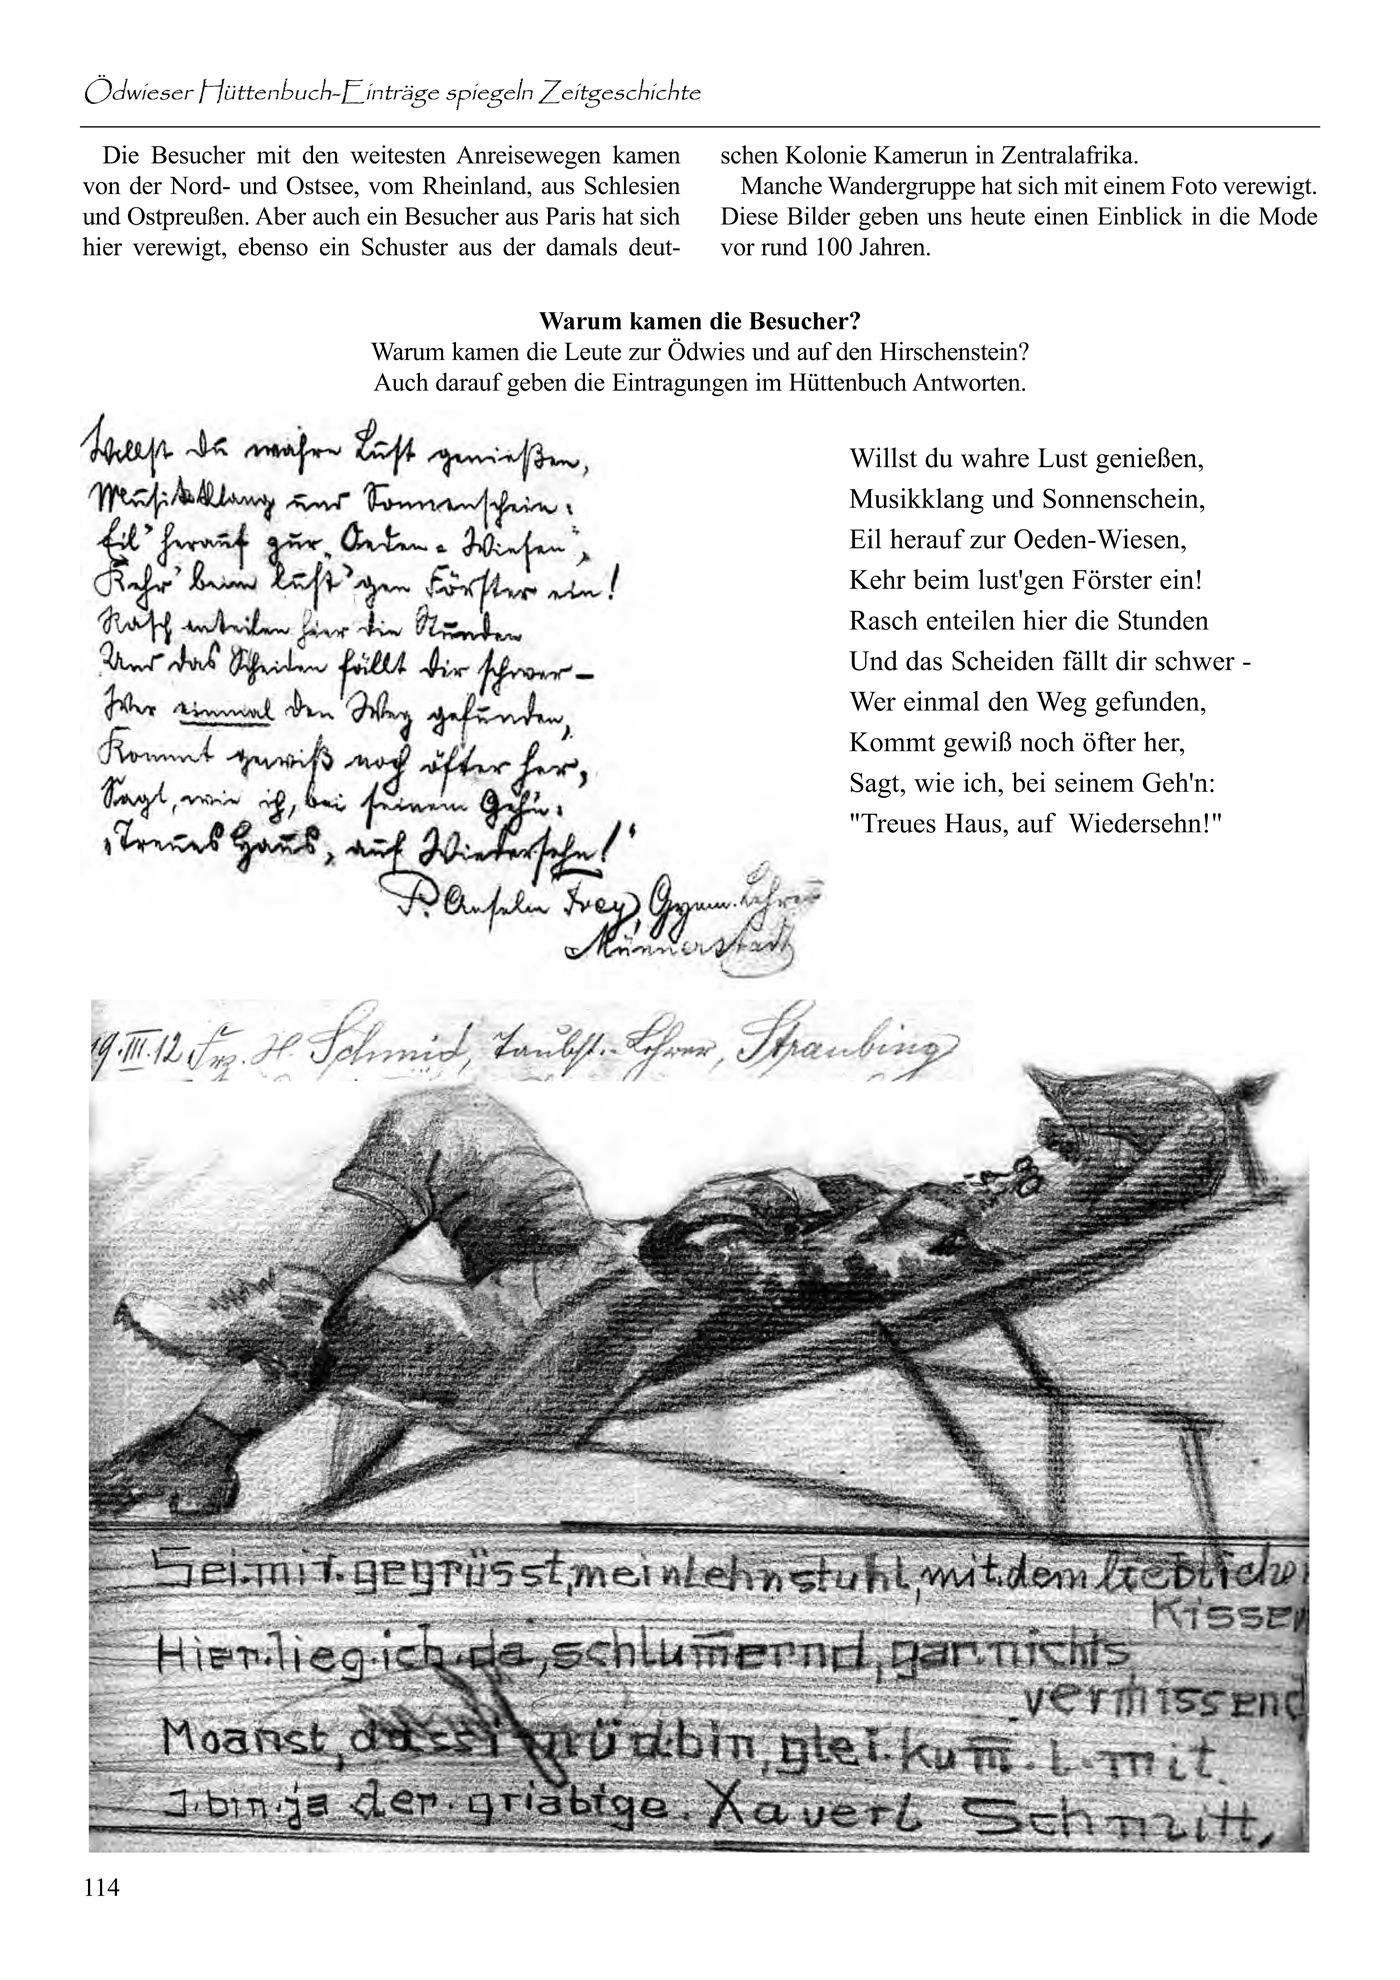 Ödwieser Hüttenbuch-Einträge spiegeln Zeitgeschichte
Die Besucher mit den weitesten Anreisewegen kamen
von der Nord- und Ostsee, vom Rheinland, aus Schlesien
und Ostpreußen. Aber auch ein Besucher aus Paris hat sich
hier verewigt, ebenso ein Schuster aus der damals deut-
schen Kolonie Kamerun in Zentralafrika.
Manche Wandergruppe hat sich mit einem Foto verewigt.
Diese Bilder geben uns heute einen Einblick in die Mode
vor rund 100 Jahren.
Warum kamen die Besucher?
Warum kamen die Leute zur Ödwies und auf den Hirschenstein?
Auch darauf geben die Eintragungen im Hüttenbuch Antworten.
Willst du wahre Lust genießen,
Musikklang und Sonnenschein:
Eil' herauf zur „Oeden-Wiesen",
Kehr' beim lust'gen Förster ein!
Rasch enteilen hier die Stunden
Und das Scheiden fällt dir schwer –
Wer einmal den Weg gefunden,
Kommt gewiß noch öfter her,
Sagt, wie ich, bei seinem Gehn:
„Treues Haus, auf Wiedersehn!"
P. Anselm Frey, Gymn. Lehrer
Münnerstadt
Willst du wahre Lust genießen,
Musikklang und Sonnenschein,
Eil herauf zur Oeden-Wiesen,
Kehr beim lust'gen Förster ein!
Rasch enteilen hier die Stunden
Und das Scheiden fällt dir schwer -
Wer einmal den Weg gefunden,
Kommt gewiß noch öfter her,
Sagt, wie ich, bei seinem Geh'n:
"Treues Haus, auf Wiedersehn!"
19.III.12 Frz. H. Schmid, Taubst.-Lehrer, Straubing
Sei.mir.gegrüsst,mein Lehnstuhl,mit.dem lieblichen
Kissen
Hier.lieg.ich.da,schlum̄ernd,gar.nichts
vermissend
Moanst,dass i müd.bin,glei.kum̄.i.mit.
I.bin.ja der.griabige.Xaverl Schmitt,
114